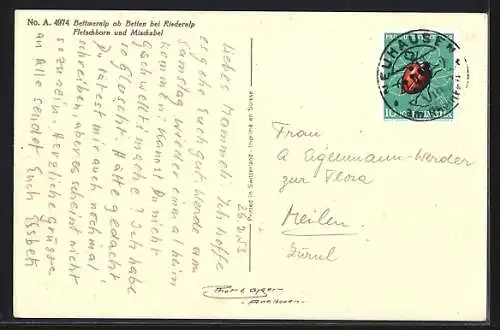 No. A. 4974 Bettmeralp ob Betten bei Riederalp
Fletschhorn und Mischabel
26.2.53
Liebes Mammeli. Ich hoffe
es gehe Euch gut. Werde am
Samstag wieder einmal heim
kommen. Kannst Du nicht
mache? Ich habe
so Glüscht. Hätte gedacht
Du tätest mir auch nochmal
schreiben, aber es scheint nicht
so zu sein. Herzliche Grüsse
an Alle sendet Euch
Printed in Switzerland - Imprimé en Suisse
NEUHAUSEN
Frau
A Egelmann-Werder
zur Flora
Meilen
Zürich